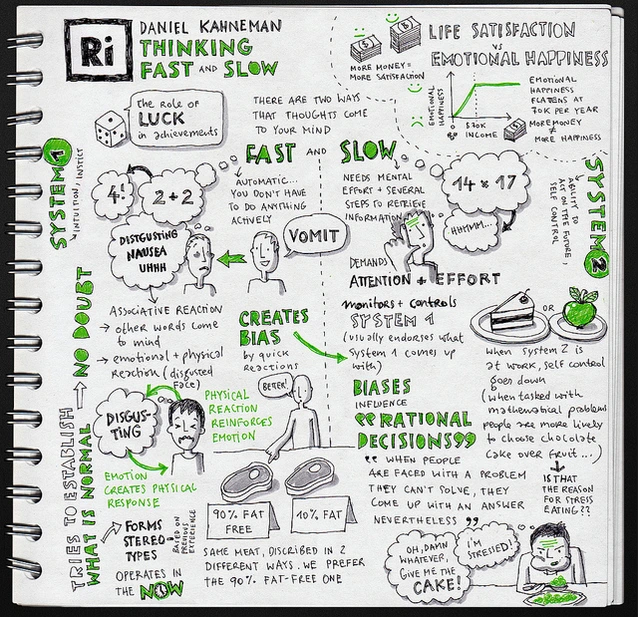 Ri
DANIEL KAHNEMAN
THINKING
FAST AND SLOW
MORE MONEY =
MORE SATISFACTION
LIFE SATISFACTION
VS
EMOTIONAL HAPPINESS
EMOTIONAL
HAPPINESS
$70K
INCOME
EMOTIONAL
HAPPINESS
FLATENS AT
70K PER YEAR
MORE MONEY
≠
MORE HAPPINESS
the Role of
LUCK
in achievements
THERE ARE TWO WAYS
THAT THOUGHTS COME
TO YOUR MIND
FAST AND SLOW
SYSTEM 1
INTUITION, INSTICT
4!
2+2
AUTOMATIC...
YOU DON'T HAVE
TO DO ANYTHING
ACTIVELY
NEEDS MENTAL
EFFORT + SEVERAL
STEPS TO RETRIEVE
INFORMATION
14 x 17
HHMM...
SYSTEM 2
ABILITY TO
ACT ON THE FUTURE,
SELF CONTROL
DISTGUSTING
NAUSEA
UHHH
VOMIT
DEMANDS
ATTENTION + EFFORT
monitors + controls
SYSTEM 1
(usually endorses what
System 1 comes up
with)
NO DOUBT
ASSOCIATIVE REACTION
→ other words come
to mind
→ emotional + physical
Reaction (disgusted
face)
CREATES
BIAS
by quick
REACTIONS
OR
when System 2 is
at work, self control
goes down
(when tasked with
mathematical problems
people are more likely
to choose chocolate
cake over fruit...)
IS THAT
THE REASON
FOR STRESS
EATING??
BIASES
INFLUENCE
“RATIONAL
DECISIONS”
“WHEN PEOPLE
ARE FACED WITH A PROBLEM
THEY CAN'T SOLVE, THEY
COME UP WITH AN ANSWER
NEVERTHELESS”
DISGUS-
TING
PHYSICAL
REACTION
REINFORCES
EMOTION
BETTER!
EMOTION
CREATES PHYSICAL
RESPONSE
TRIES TO ESTABLISH
WHAT IS NORMAL
FORMS
STEREO-
TYPES
BASED ON
PREVIOUS
EXPERIENCE
OPERATES IN
THE NOW
90% FAT
FREE
10% FAT
SAME MEAT, DISCRIBED IN 2
DIFFERENT WAYS. WE PREFER
THE 90% FAT-FREE ONE
OH, DAMN
WHATEVER,
GIVE ME THE
CAKE!
I'M
STRESSED!